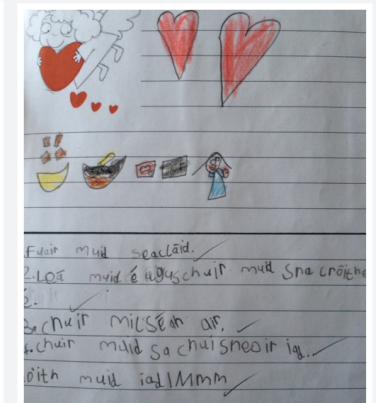 Fuair muid seacláid.
2. Leá muid é agus chuir muid sna croíthe
é.
3. chuir milseán air.
4. chuir muid sa chuisneoir iad.
óith muid iad! Mmm